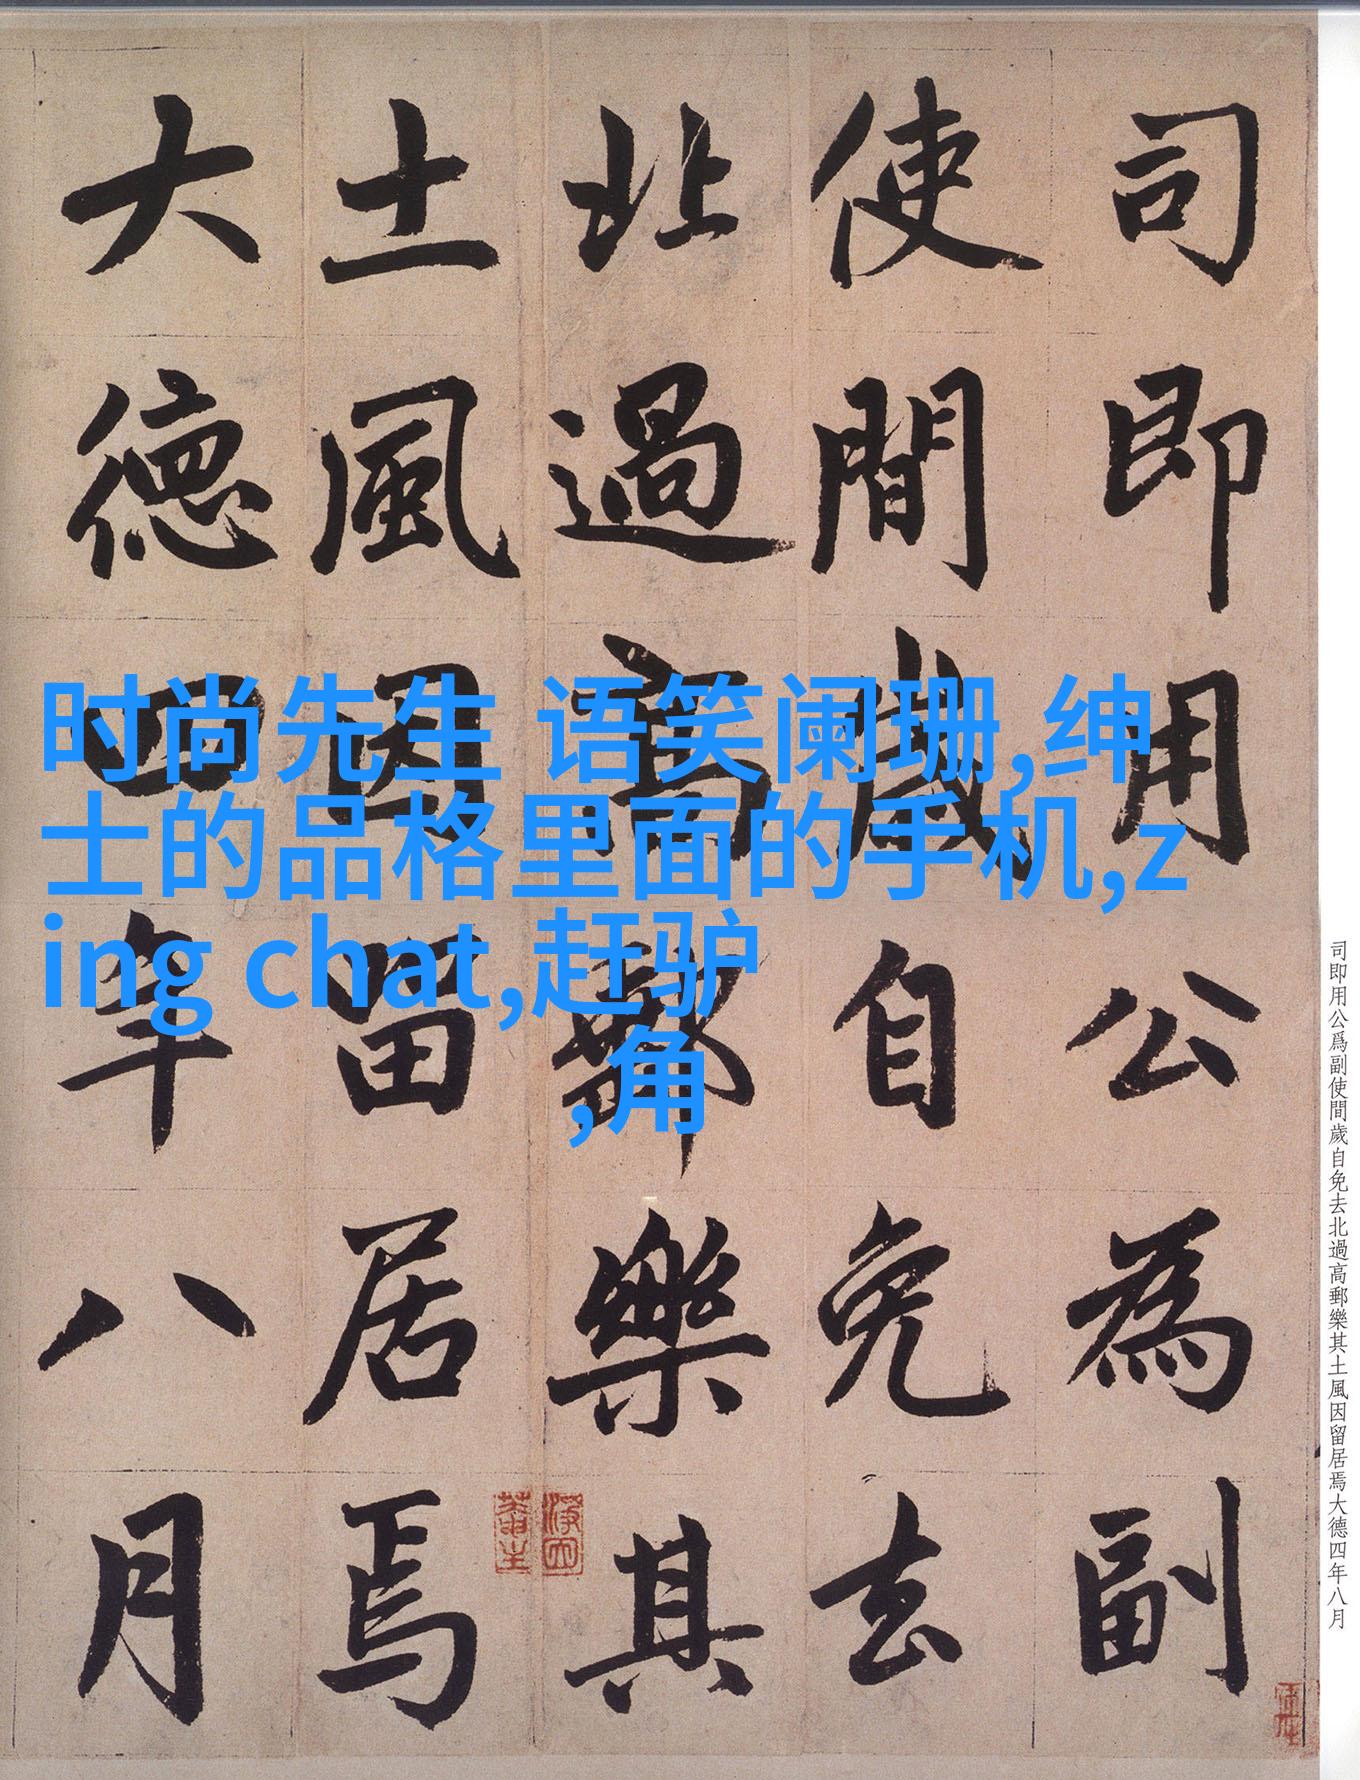 司即用公為副
使間歲自免去
北過高郵樂其
土風因留居焉
大德四年八月
时尚先生 语笑阑珊,绅
士的品格里面的手机,z
ing chat,赶驴
,角
司即用公爲副使間歲自免去北過高郵樂其土風因留居焉大德四年八月